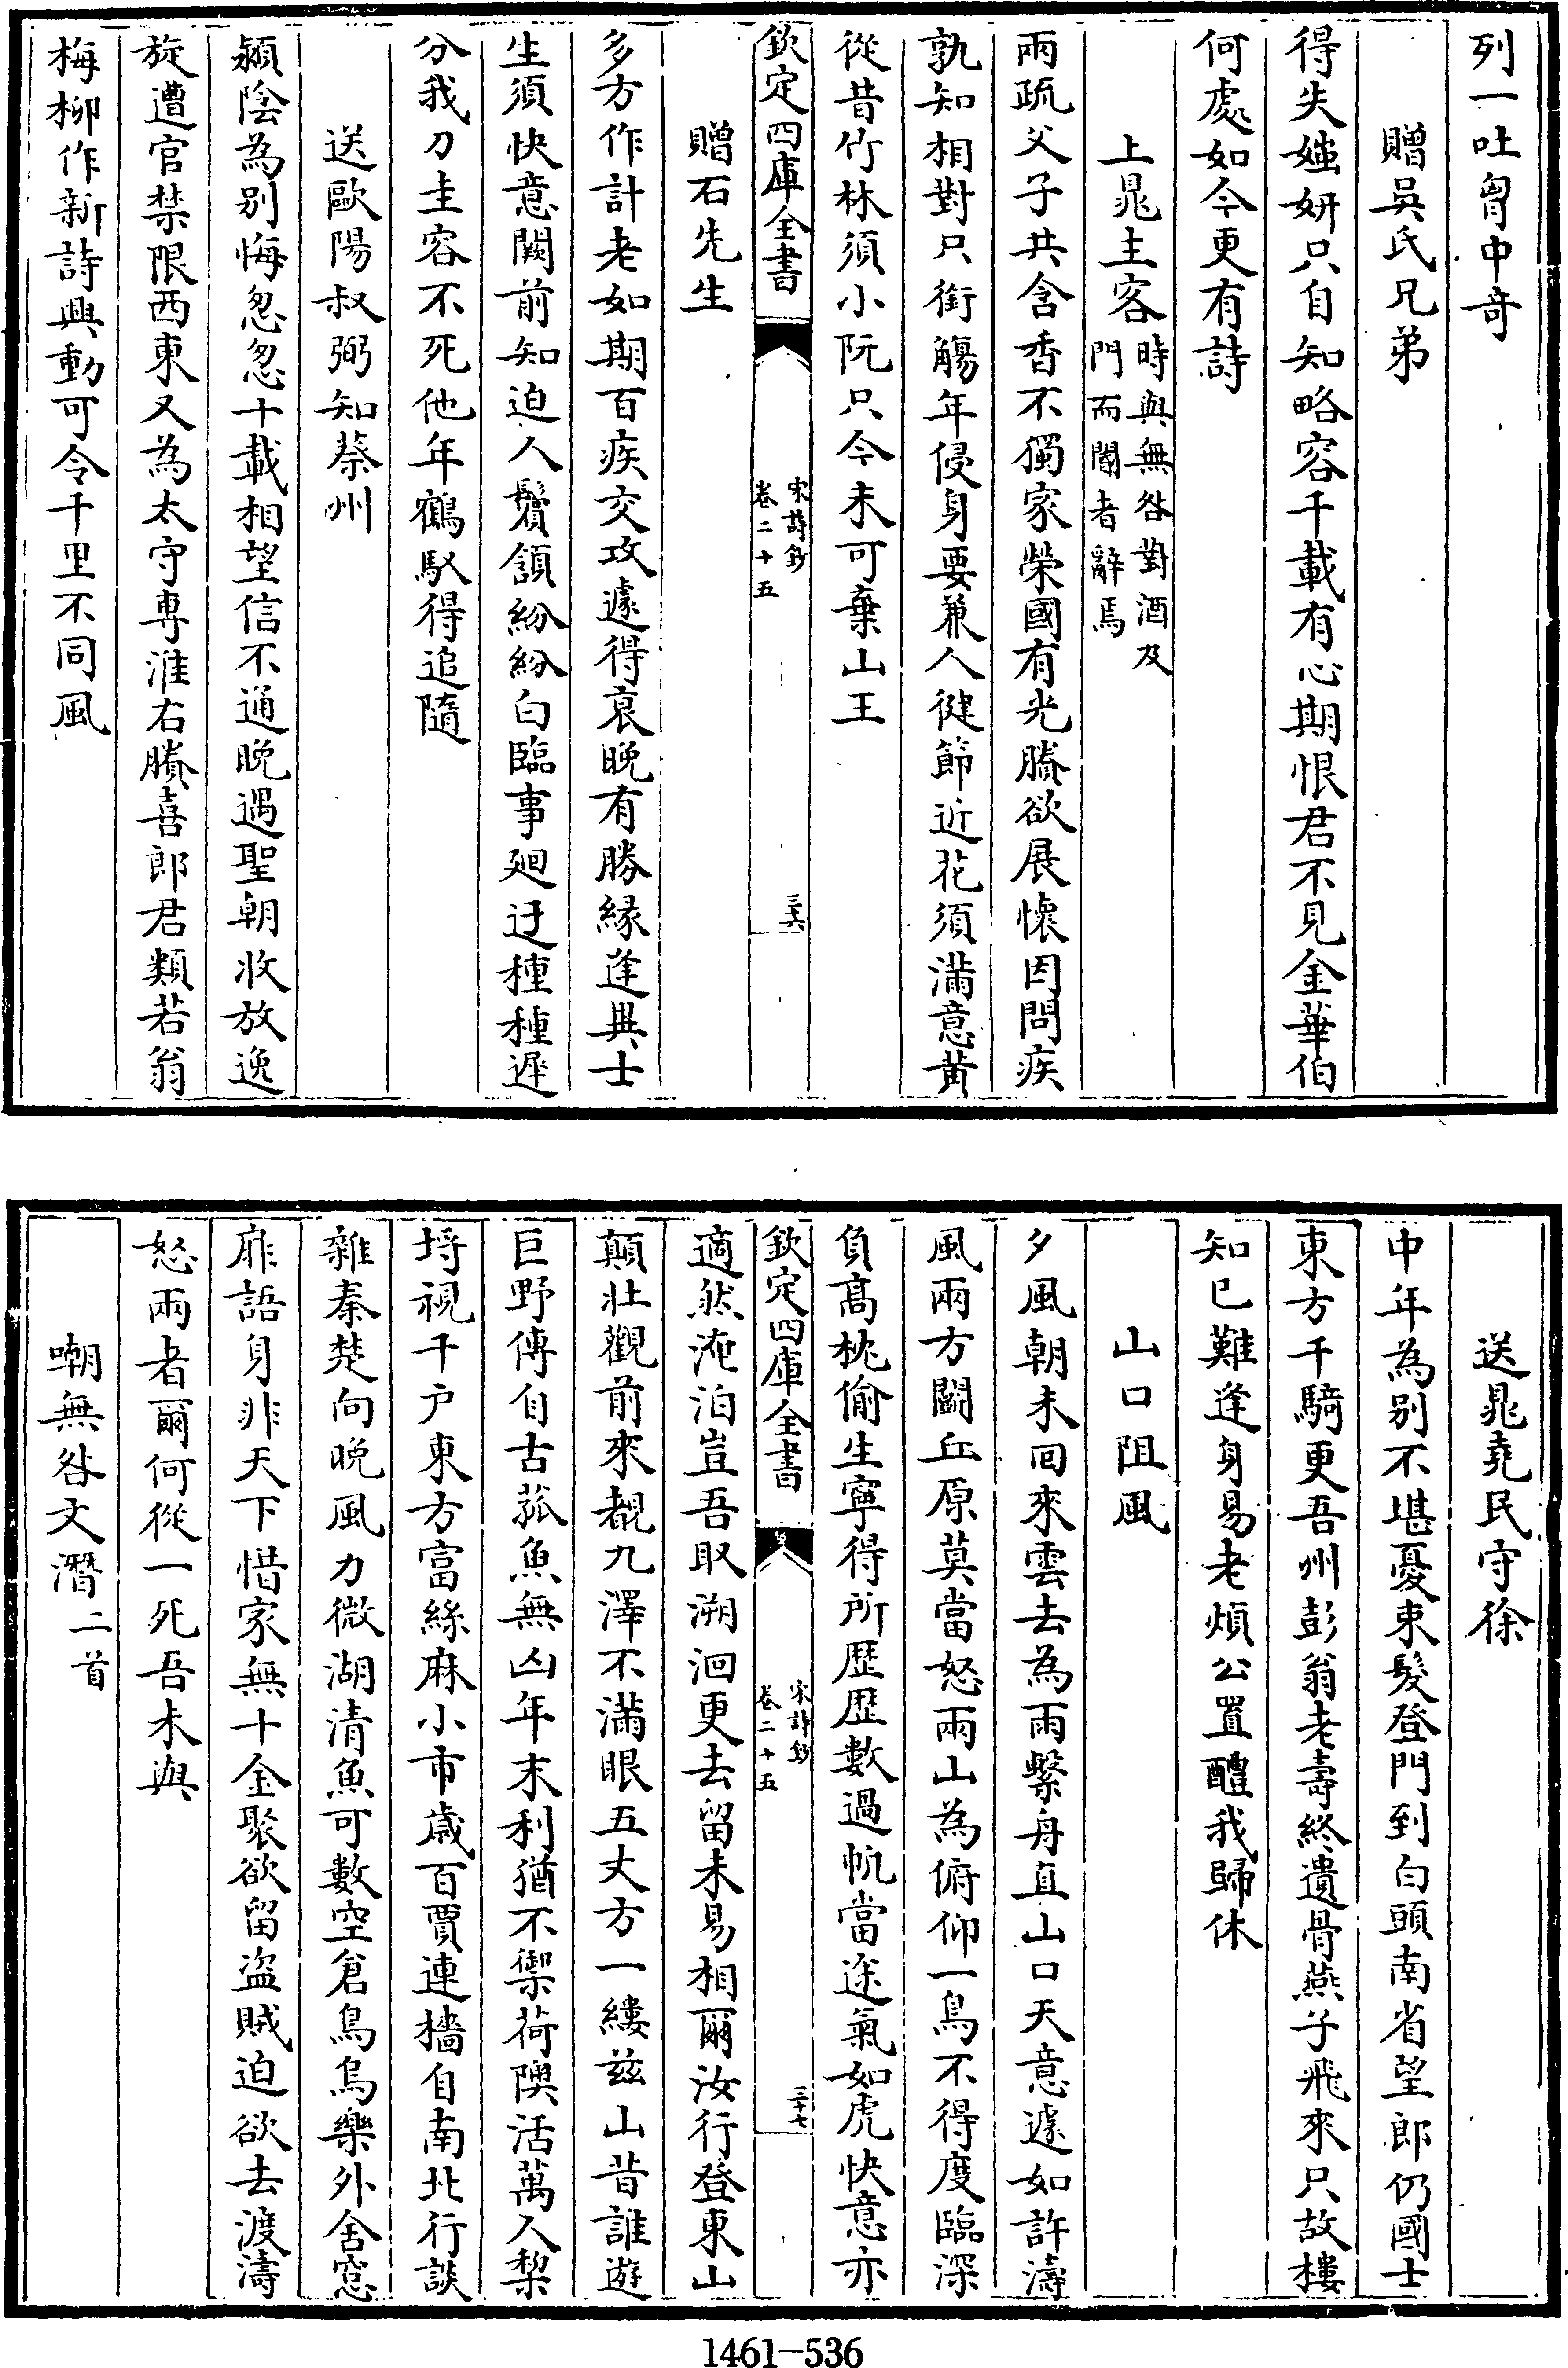 列一吐胷中奇
贈吳氏兄弟
得失媸妍只自知略容千載有心期恨君不見金華伯
何處如今更有詩
上晁主客時與無咎對酒及門而閽者辭焉
兩疏父子共含香不獨家榮國有光賸欲展懷因問疾
孰知相對只銜觴年侵身要兼人健節近花須滿意黄
從昔竹林須小阮只今未可棄山王
欽定四庫全書
宋詩鈔
卷二十五
三十六
贈石先生
多方作計老如期百疾交攻遽得衰晚有勝緣逢異士
生須快意闕前知迫人鬢頷紛紛白臨事廻迂種種遲
分我刀圭容不死他年鶴馭得追隨
送歐陽叔弼知蔡州
潁陰為别悔怱怱十載相望信不通晚遇聖朝收放逸
旋遭官禁限西東又為太守専淮右賸喜郎君類若翁
梅柳作新詩興動可令千里不同風
送晁堯民守徐
中年為别不堪憂束髮登門到白頭南省望郎仍國士
東方千騎更吾州彭翁老壽終遺骨燕子飛來只故樓
知已難逢身易老煩公置醴我歸休
山口阻風
夕風朝未回來雲去為雨繫舟直山口天意遽如許濤
風兩方鬬丘原莫當怒兩山為俯仰一鳥不得度臨深
負髙枕偷生寧得所歷歷數過帆當途氣如虎快意亦
欽定四庫全書
宋詩鈔
卷二十五
三十七
適然淹泊豈吾取溯洄更去留未易相爾汝行登東山
顛壯觀前來覩九澤不滿眼五丈方一縷兹山昔誰遊
巨野傳自古菰魚無凶年末利猶不禦荷隩活萬人棃
埓視千户東方富絲麻小市歲百賈連檣自南北行談
雜秦楚向晚風力微湖清魚可數空倉鳥烏樂外舍窓
扉語身非天下惜家無十金聚欲留盜賊迫欲去渡濤
怒兩者爾何從一死吾未與
嘲無咎文潛二首
1461-536